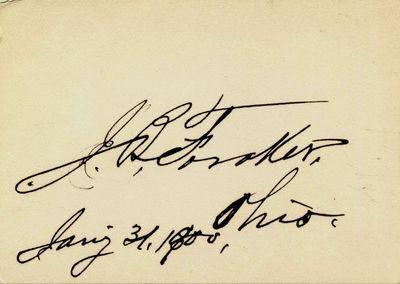 J. B. Foraker,
Ohio.
Jan'y 31, 1900,